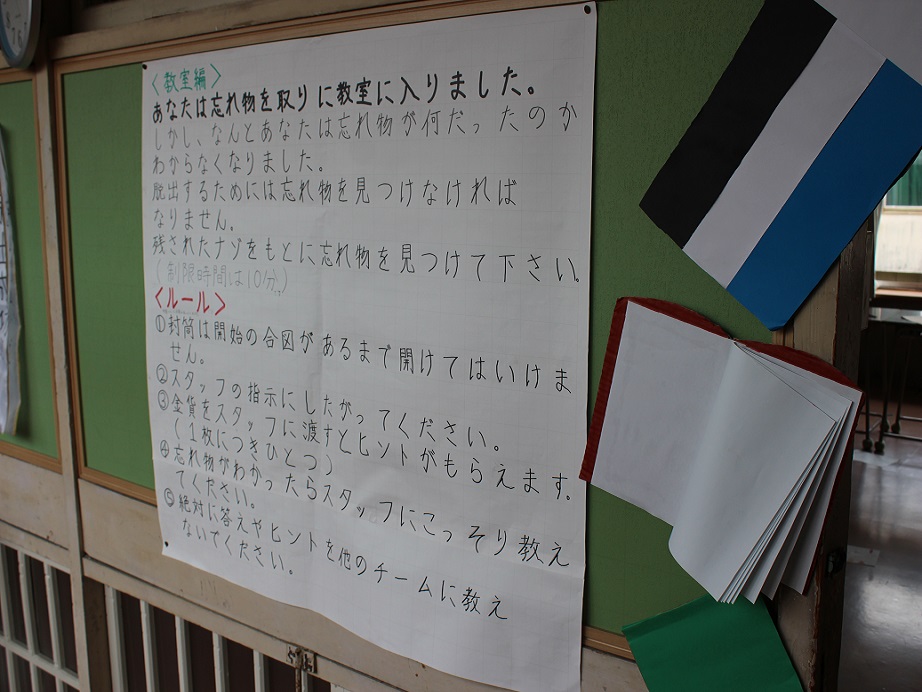 〈教室編〉
あなたは忘れ物を取りに教室に入りました。
しかし、なんとあなたは忘れ物が何だったのか
わからなくなりました。
脱出するためには忘れ物を見つけなければ
なりません。
残されたナゾをもとに忘れ物を見つけて下さい。
(制限時間は10分)
〈ルール〉
①封筒は開始の合図があるまで開けてはいけま
せん。
②スタッフの指示にしたがってください。
③金貨をスタッフに渡すとヒントがもらえます。
(1枚につきひとつ)
④忘れ物がわかったらスタッフにこっそり教え
てください。
⑤絶対に答えやヒントを他のチームに教え
ないでください。